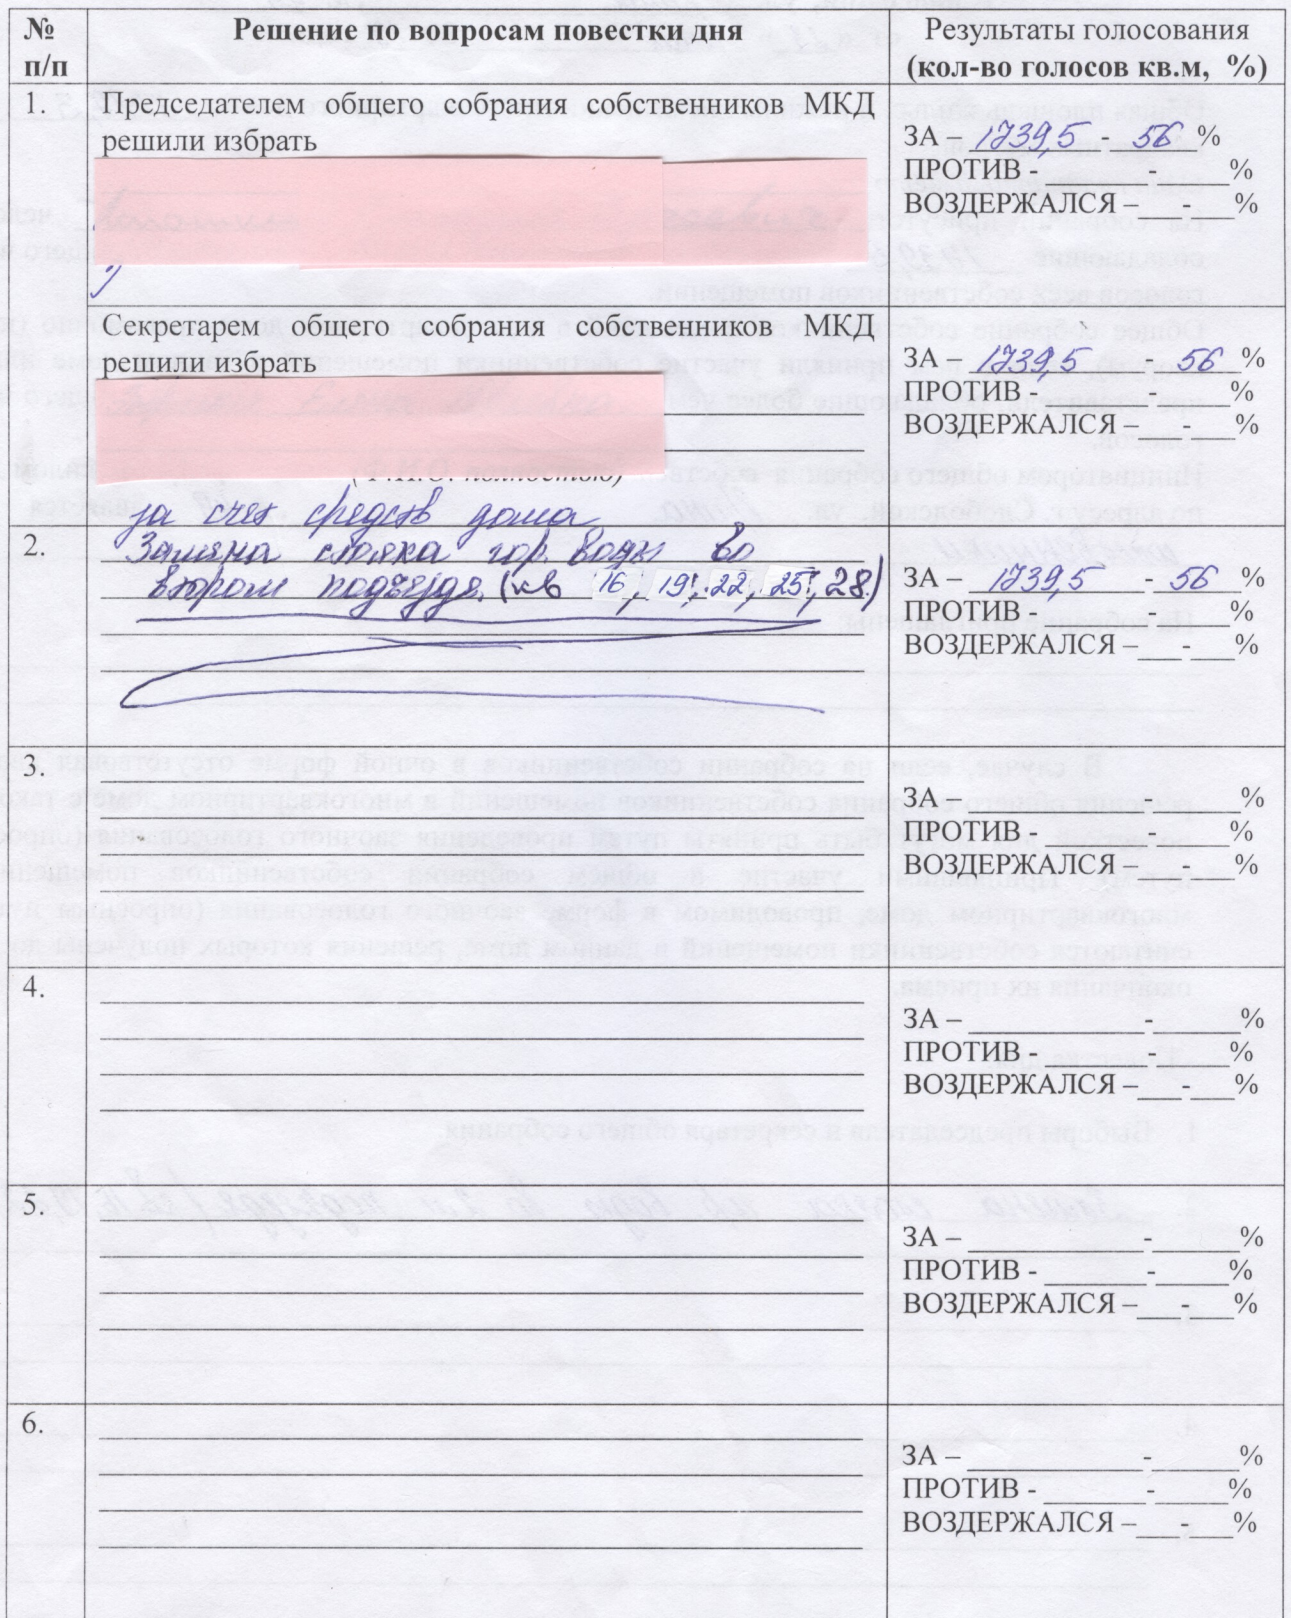 № п/п
Решение по вопросам повестки дня
Результаты голосования
(кол-во голосов кв.м, %)
1.
Председателем общего собрания собственников МКД
решили избрать
ЗА – 1739,5 - 56 %
ПРОТИВ - - %
ВОЗДЕРЖАЛСЯ – - %
Секретарем общего собрания собственников МКД
решили избрать
(Ф.И.О. полностью)
ЗА – 1739,5 - 56 %
ПРОТИВ - - %
ВОЗДЕРЖАЛСЯ – - %
за счет средств дома
2.
Замена стояка гор. воды во
втором подъезде. (кв 16, 19, 22, 25, 28)
ЗА – 1739,5 - 56 %
ПРОТИВ - - %
ВОЗДЕРЖАЛСЯ – - %
3.
ЗА – - %
ПРОТИВ - - %
ВОЗДЕРЖАЛСЯ – - %
4.
ЗА – - %
ПРОТИВ - - %
ВОЗДЕРЖАЛСЯ – - %
5.
ЗА – - %
ПРОТИВ - - %
ВОЗДЕРЖАЛСЯ – - %
6.
ЗА – - %
ПРОТИВ - - %
ВОЗДЕРЖАЛСЯ – - %